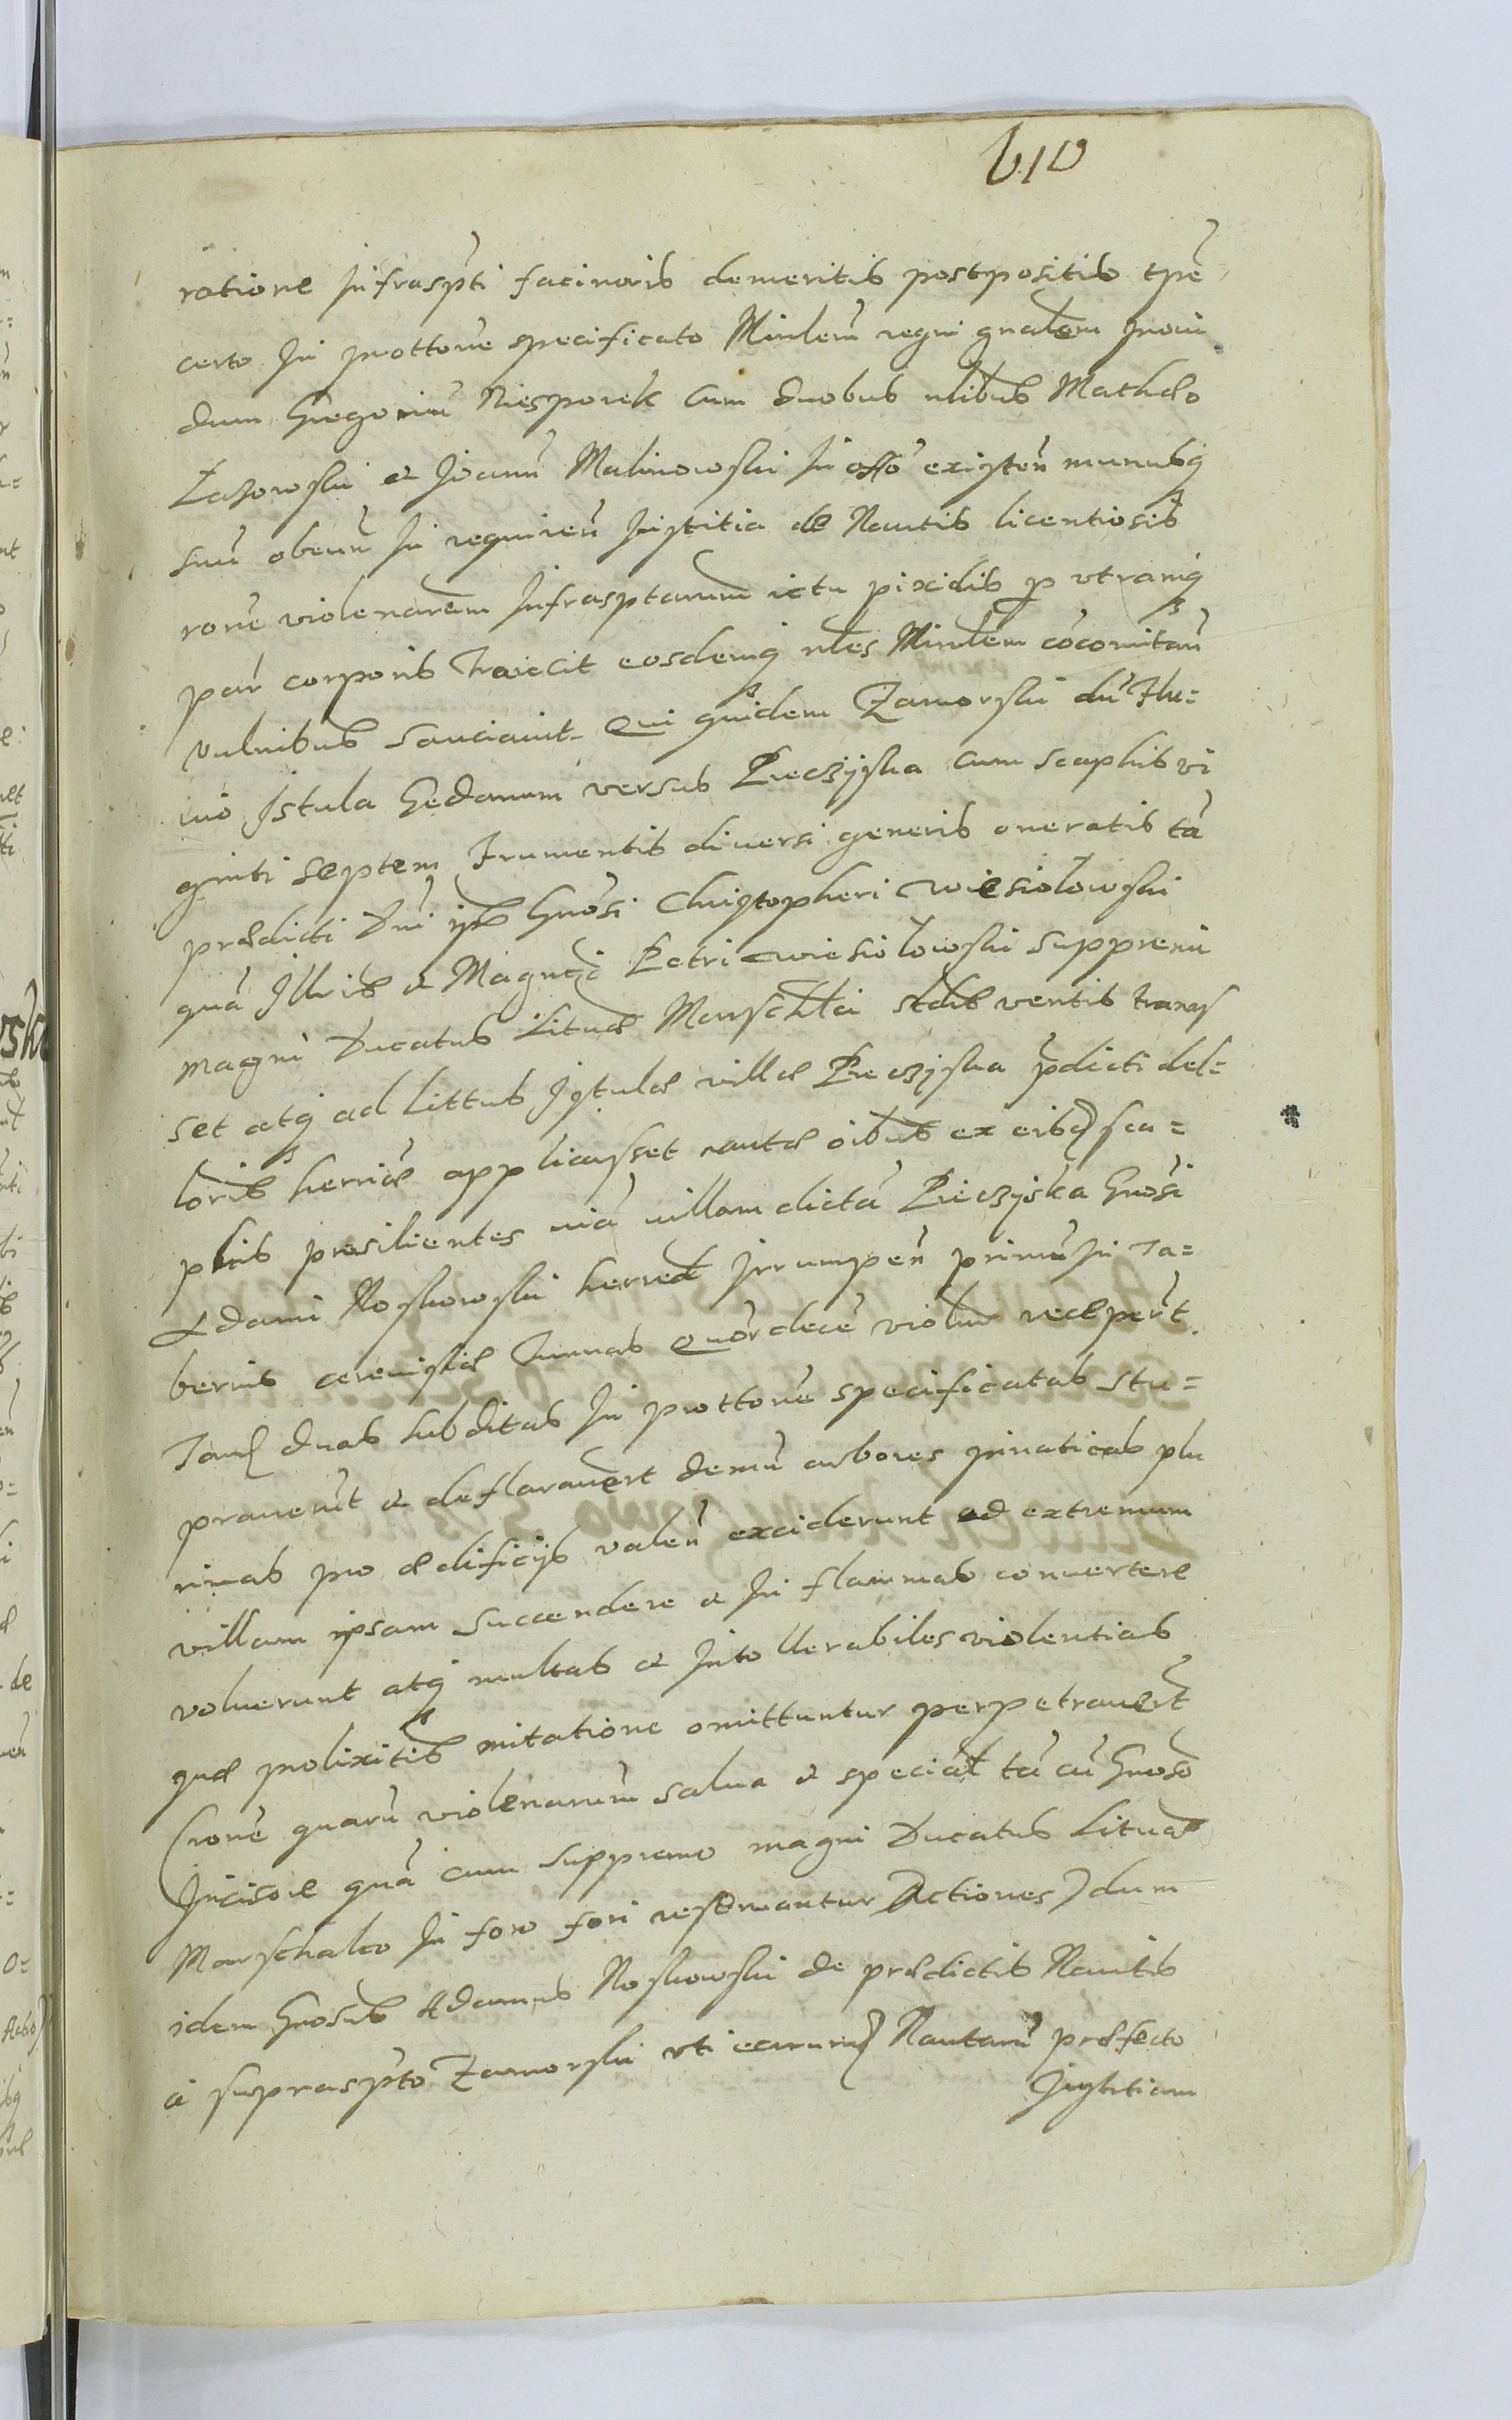 610
ratione Infraspti facinoris demeritis postpositis tpre
certo In prottone specificato Minlem regni gnalem proui
dum Gregoriu Niesporek cum duobus nlibus Mathæo
Łazowski et Joanne Malinowski In offo existen munusq
suu obeun In requiren Iustitia de Nautis licentiosis
rone violenarum Infrasptarum ictu pixidis p utramq
par corporis traiecit eosdemq nles Minlem cocomitan
vulnibus sauciauit. Qui quidem Zamorski du Flu=
uio Istula Gedanum versus Pieczyska cum scaphis vi
ginti septem frumentis diuersi generis oneratis ta
prædicti Dni Gnosi Christopheri Wiesiolowski
qua Illris et Magnci Petri Wiesiolowski suppremi
magni Ducatus Lituæ Marschalci stdis ventis trans
set atq ad littus Istulæ villæ Pieczyska pdicti del=
loris herriæ applicasset nautæ oibus ex eisd sca=
phis prosilientes uia uillam dicta Pieczyska Gnosi
Adami Noskowski herred Irrumpen primu In ta=
bernis cereuisiæ tunnas Quordece violnr receperut.
Tand duas subditas In prottone specificatas stu=
prauerut et deflorauert demu arbores pinaticas plu
rimas pro ædificijs valen exciderunt ad extremum
villam ipsam succendere et In flammas conuertere
voluerunt atq multas et Intollerabiles violentias
quæ prolixitis uitatione omittuntur perpetrauert
(rone quaru violenarum salua et special ta cu Gnoso
Incisore qua cum suppremo magni Ducatus Lituæ
Marschalco In foro fori reseruantur Actiones) dum
idem Gnosus Adamus Noskowski de prædictis Nautis
a supraspto Zamorski uti earumd Nautaru præfecto
Iustitiam